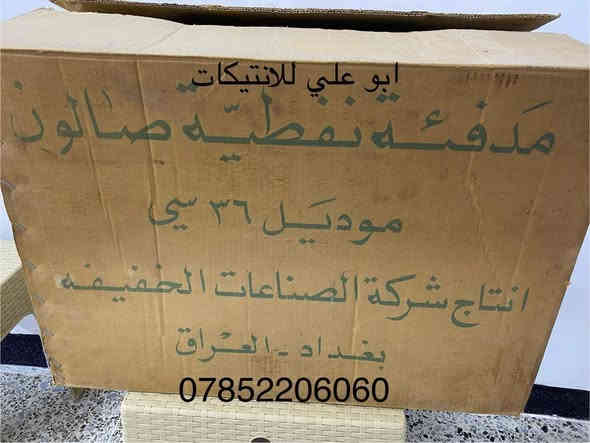 ابو علي للانتيكات
مدفئة نفطيّة صالون
موديل ٣٦ سي
انتاج شركة الصناعات الخفيفه
بغداد - العراق
07852206060